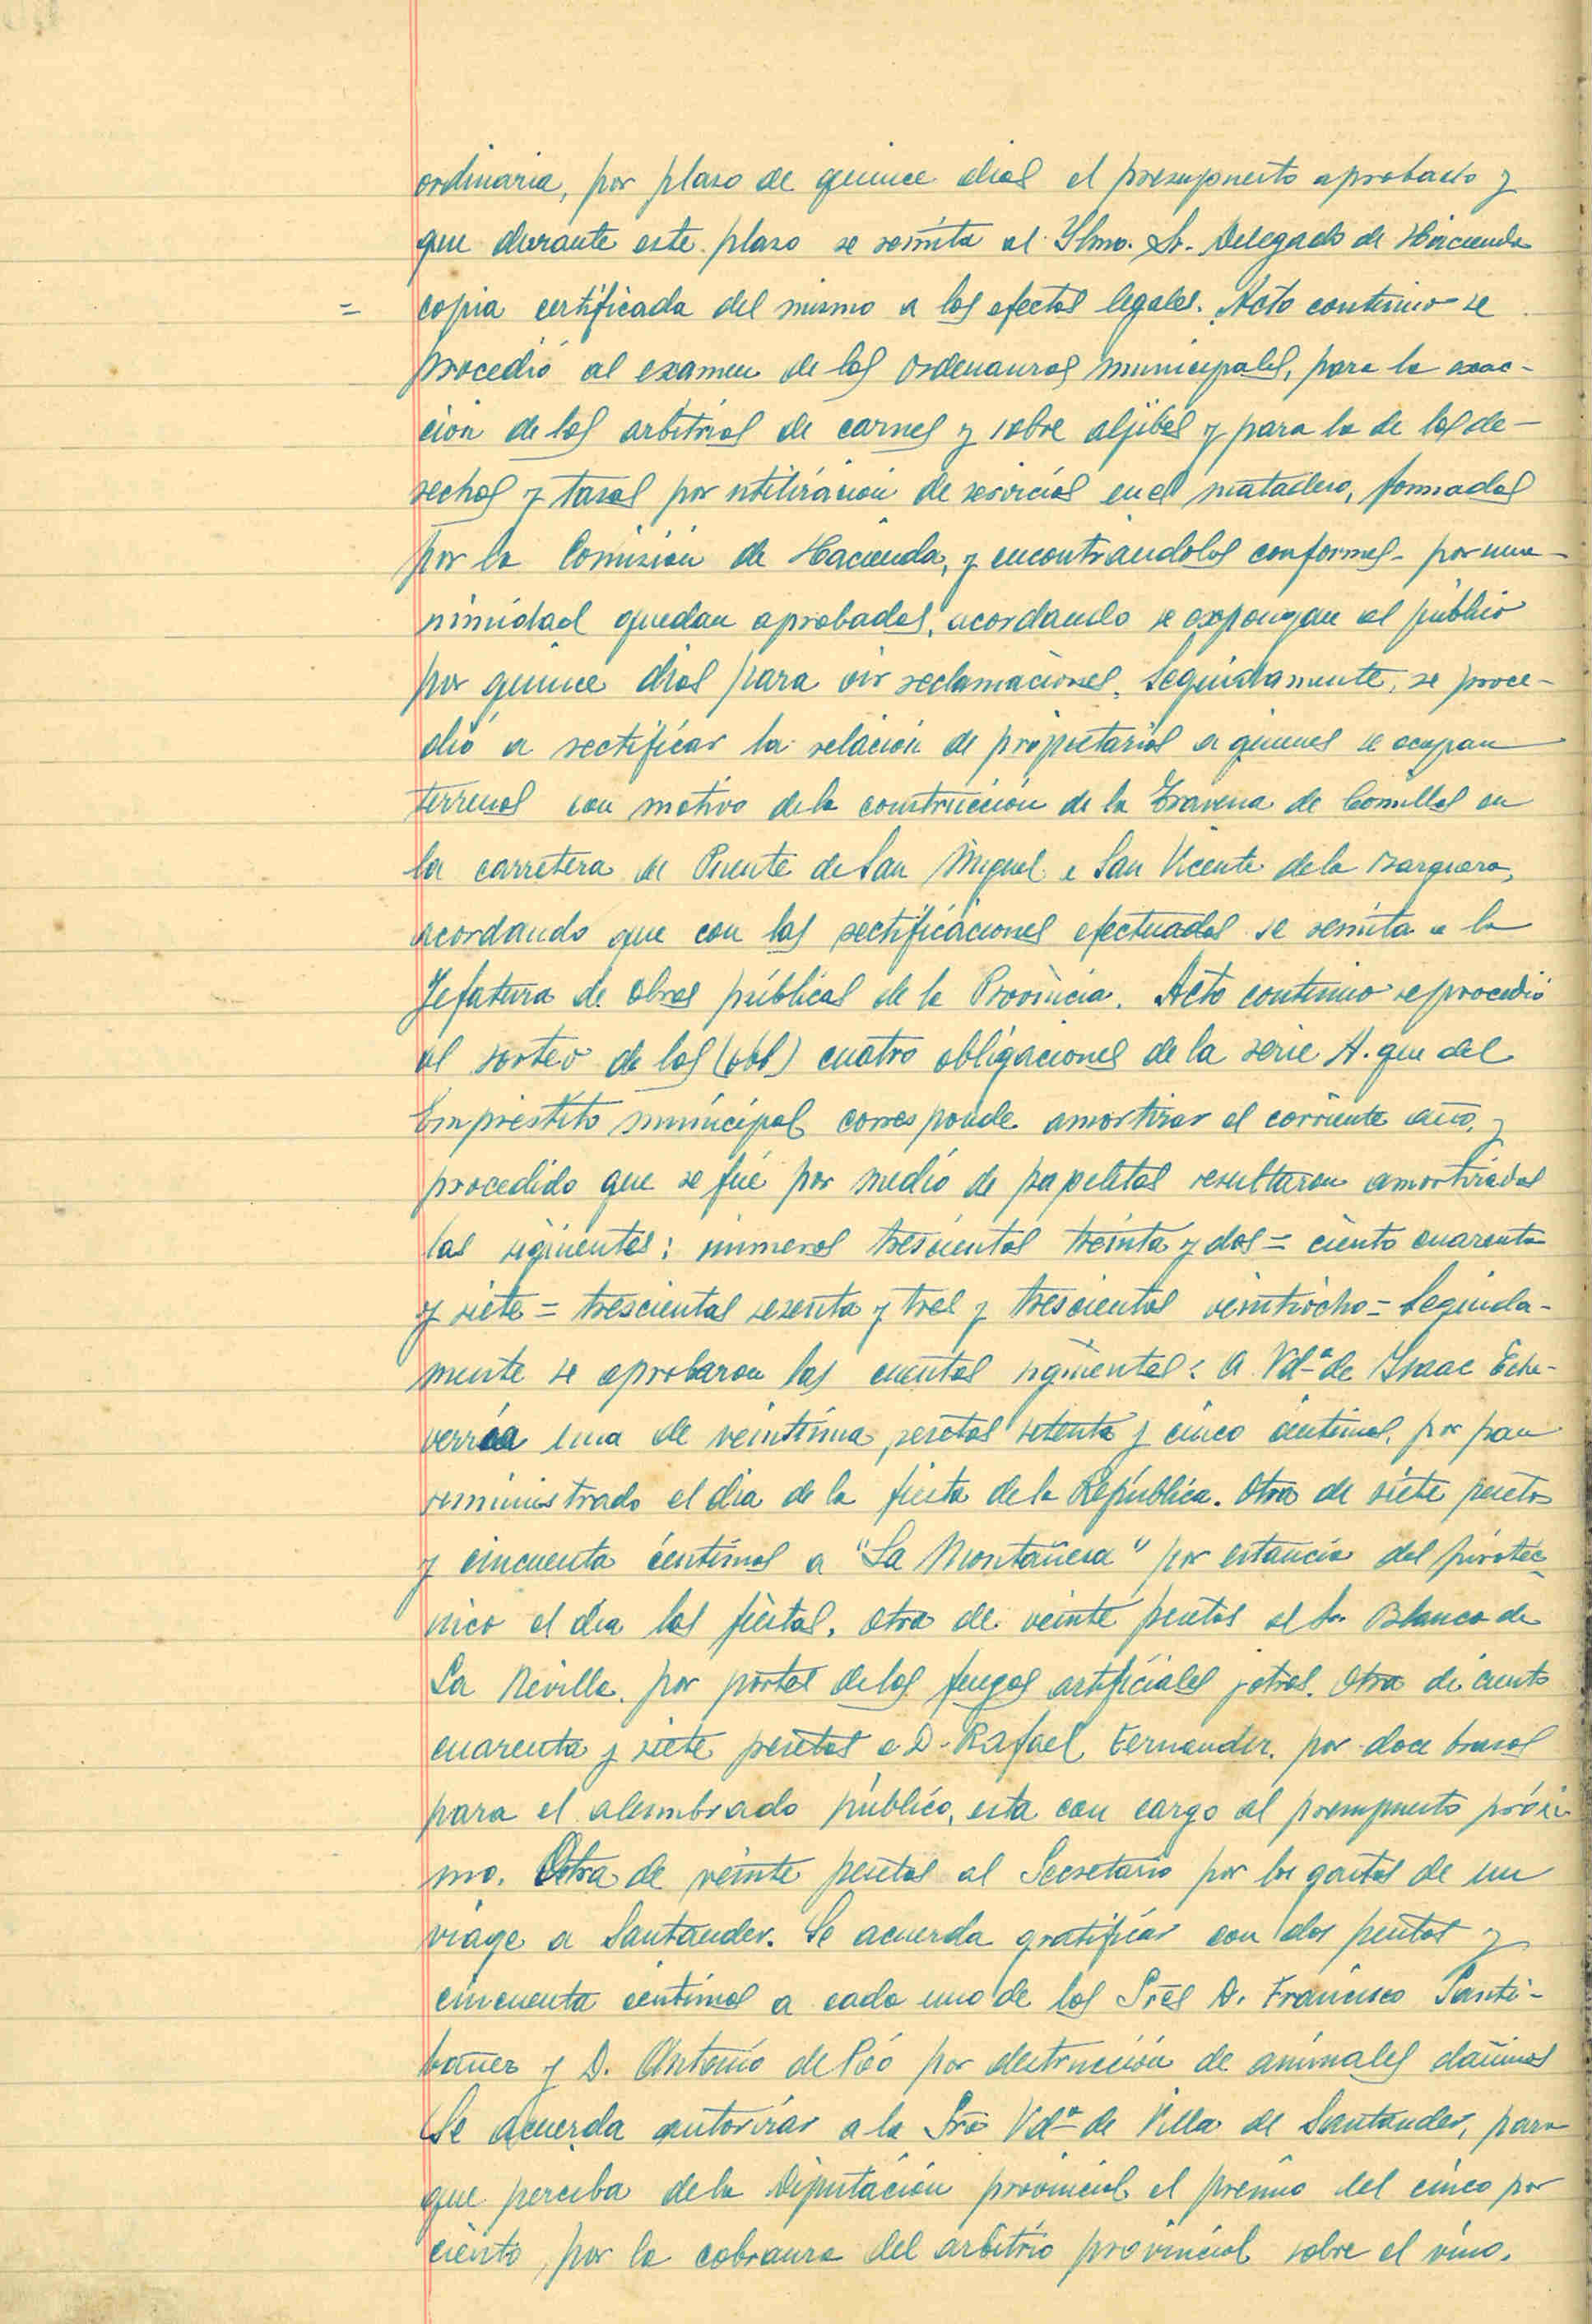 ordinaria, por plazo de quince dias el presupuesto aprobado y
que durante este plazo se remita al Ylmo. Sr. Delegado de Hacienda
= copia certificada del mismo a los efectos legales. Acto continuo se
procedió al examen de las Ordenanzas municipales, para la exac-
cion de los arbitrios de carnes y sobre aljibes y para la de los de-
rechos y tasas por utilización de servicios en el matadero, formadas
por la Comision de Hacienda, y encontrándolas conformes por una-
nimidad quedan aprobadas, acordando se expongan al público
por quince dias para oir reclamaciones. Seguidamente, se proce-
dió a rectificar la relación de propietarios a quienes se ocupan
terrenos con motivo de la construcción de la Travesia de Comillas en
la carretera de Puente de San Miguel a San Vicente de la Barquera,
acordando que con las rectificaciones efectuadas se remita a la
Jefatura de Obras públicas de la Provincia. Acto continuo se procedió
al sorteo de las (obl) cuatro obligaciones de la serie A. que del
Empréstito municipal corresponde amortizar el corriente año, y
procedido que se fué por medio de papeletas resultaron amortizadas
las siguientes: numeros trescientos treinta y dos = ciento cuarenta
y siete = trescientos sesenta y tres y trescientos veintiocho = Seguida-
mente se aprobaron las cuentas siguientes: A Vdª de Ysaac Eche-
verría una de veintiuna pesetas setenta y cinco centimos, por pan
suministrado el dia de la fiesta de la República. Otra de siete pesetas
y cincuenta céntimos a "La Montañesa" por estancia del pirotéc-
nico el dia las fiestas. Otra de veinte pesetas al Sr. Blanco de
La Revilla, por portes de los fuegos artificiales y otros. Otra de ciento
cuarenta y siete pesetas a D. Rafael Fernandez. por doce brazos
para el alumbrado público, esta con cargo al presupuesto próxi-
mo. Otra de veinte pesetas al Secretario por los gastos de un
viage a Santander. Se acuerda gratificar con dos pesetas y
cincuenta centimos a cada uno de los Sres D. Francisco Santi-
bañez y D. Antonio de Poó por destrucción de animales dañinos
Se acuerda autorizar a la Srª Vdª de Villa de Santander, para
que perciba de la Diputación provincial el premio del cinco por
ciento por la cobranza del arbitrio provincial sobre el vino.